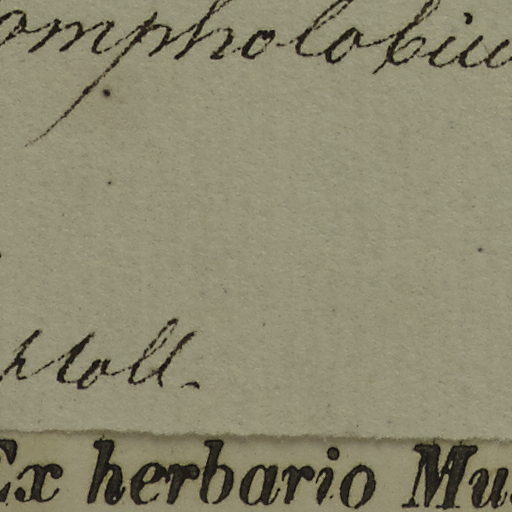 ompholobiu
N Holl.
Ex herbario Mus